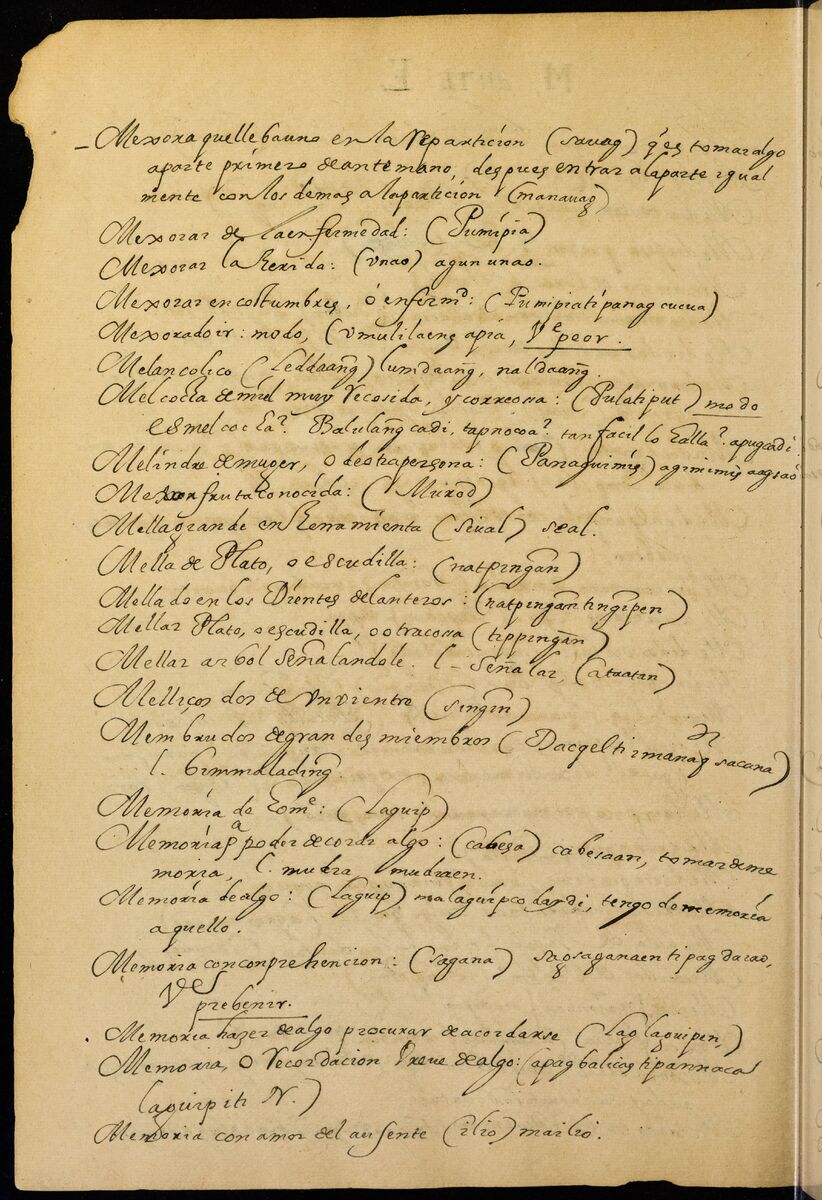 – Mexora que lleba uno en la reparticion (savag) q̃ es tomar algo
aparte primero de antemano, despues entrar a la parte igual
mente con los demas a la particion (manavag)
Mexorar de la enfermedad: (Pumipia)
Mexorar la herida: (vnao) agun unao.
Mexorar en costumbres, ó enfermd: (Pumipiati panag cucua)
Mexorado ir: modo, (vmulilaeng apia, Ve peor.
Melancolico (Leddaang̃) lumdaang, naldaang̃.
Melcocha de miel muy recosida, y correosa: (Pulatiput) modo
es melcocha?. Balulang̃cadi, tapnocoa?. tan facil lo halla?. apugcadi
Melindre de muger, o de otra persona: (Panaguimis) agimimis
Mexon fruta conocida: (Murod)
Mella grande en herramienta (sival) seal.
Mella de Plato, o escudilla: (natping̃an)
Mellado en los Dientes delanteros: (natping̃anting̃ipen)
Mellar Plato, o escudilla, o otra cossa (tipping̃an)
Mellar arbol señalandole. l– señalar, (atratan)
Melliços dos de un vientre (sing̃in)
Membrudos de grandes miembros (Dacqelti imanañg sacana)
l. bimmalading̃.
Memoria de home: (Laguip)
Memoria pa poder decorar algo: (cabesa) cabesaan, tomar de me
moria, l. mudra mudraen.
Memoria de algo: (Laguip) malaguipco dardi, tengo de memoria
aquello.
Memoria con conprehencion: (sagana) sagsaganaen ti pagdarao,
Ves
prebenir.
Memoria hazer de algo procurar de acordarse (Laglaguipen,)
Memoria, o recordacion breve de algo: (apagbalicas tipannaca
laguipiti N.)
Memoria con amor del ausente (ilio) mailio.